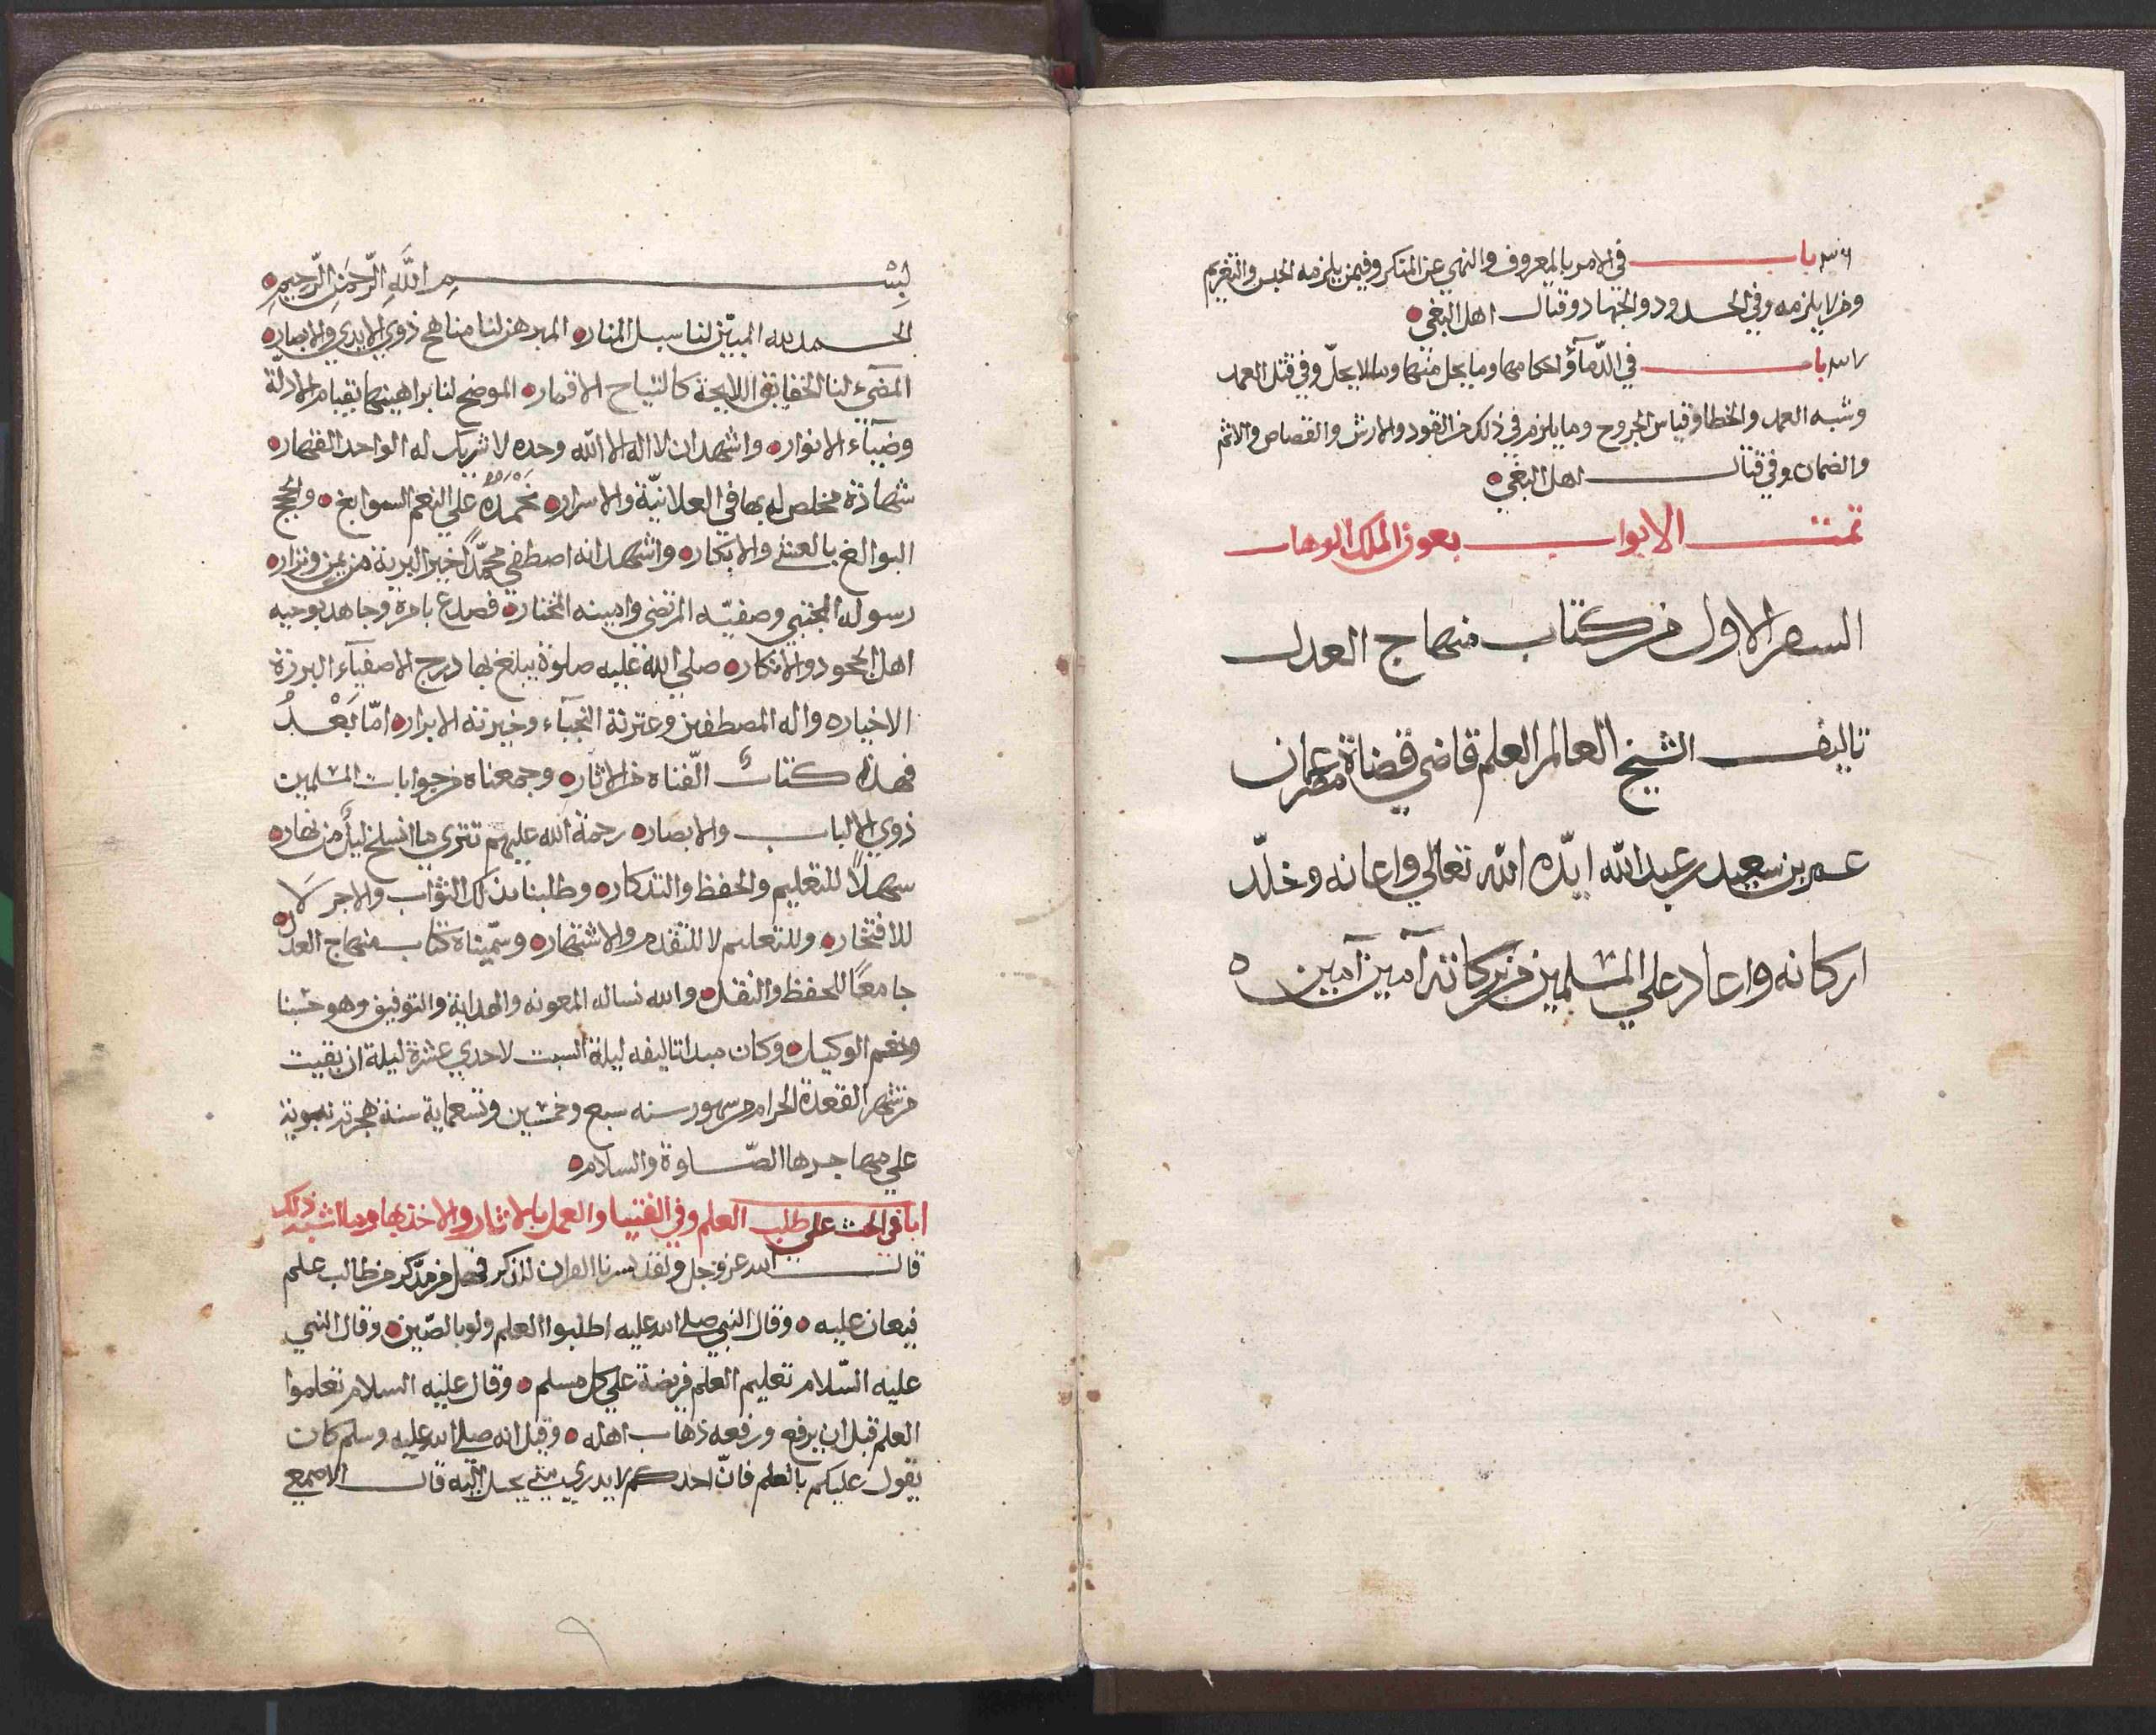 باب في الامر بالمعروف والنهي عن المنكر وفيمن يلزمه الحبس والتغريم
ومن لا يلزمه وفي الحدود والجهاد وقتال اهل البغي
باب في الدمآؤ احكامها وما يحل منها وما لا يحلّ وفي قتل العمد
وشبه العمد والخطا وقياس الجروح وما يلزم في ذلك من القود والارش والقصاص والاثم
والضمان وفي قتال اهل البغي
تمت الابواب بعون الملك الوهاب
السفر الاول من كتاب منهاج العدل
تاليف الشيخ العالم العلم قاضي قضاة عمان
عمر بن سعيد بن عبدالله ايّده الله تعالي واعانه وخلّد
اركانه واعاد علي المسلمين من بركاته آمين آمين
بِسْم اللَّهِ الرّحمَنِ الرّحيمِ
الحمد لله المبيّن لنا سبل المنار المبرهن لنا مناهج ذوي الايدي والابصار
المضيء لنا الحقايق اللايحة كالتياح الاقمار الموضح لنا براهينها بقيام الادلّة
وضيآء الانوار واشهد ان لا اله الا الله وحده لا شريك له الواحد القهار
شهادة مخلص له بها في العلانيّة والاسرار نَحْمَدُهُ علي النعم السوابغ والحجج
البوالغ بالعشي والابكار واشهد انه اصطفي محمّدًا خير البرية من يمن ونزار
رسوله المجتبي وصفيّه المرتضي وامينه المختار فصدع بامره وجاهد بوحيه
اهل الجحود والانكار صلي الله عليه صلوة يبلغ بها درج الاصفيآء البررة
الاخيار واله المصطفين وعترته النجبآء وخيرته الابرار امّا بَعْدُ
فهذا كتابٌ الّفناه من الاثار وجمعناه من جوابات المسلمين
ذوي الالباب والابصار رحمة الله عليهم تتري ما انسلخ ليلٌ من نهار
سهلاً للتعليم والحفظ والتذكار وطلبنا بذلك الثواب والاجر لَا
للافتخار وللتعليم لا للتقدم والاشتهار وسمّيناه كتاب منهاج العدل
جامعًا للحفظ والنقل والله نساله المعونه والهداية والتوفيق وهو حسبنا
ونعم الوكيل وكان مبدا تاليفه ليلة السبت لاحدي عشرة ليلة ان بقيت
من شهر القعدة الحرام من شهور سنه سبع وخمسين وتسعماية سنة هجرته نبوية
علي مهاجرها الصّلوة والسلام
باب في الحث علي طلب العلم وفي الفتيا والعمل بالاثار والاخذ بها وما اشبه ذلك
قال الله عز وجل ولقد يسرنا القران للذكر فهل من مدّكر من طالب علم
فيعان عليه وقال النبي صلي الله عليه اطلبوا العلم ولو بالصّين وقال النبي
عليه السّلام تعليم العلم فريضة علي كل مسلم وقال عليه السلام تعلموا
العلم قبل ان يرفع ورفعه ذهاب اهله وقيل انه صلي الله عليه وسلم كان
يقول عليكم بالعلم فانّ احدكم لا يدري متي يحتل اليه قال الاصمعي